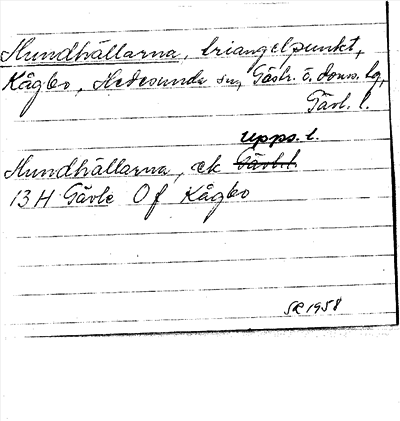 Hundhällarna, triangelpunkt,
Kågbo, Hedesunda sn, Gästr. ö. doms. tg,
Gävl. l.
Upps. l.
Hundhällarna, ek Gävl. l.
13 H Gävle Of Kågbo
SR 1958